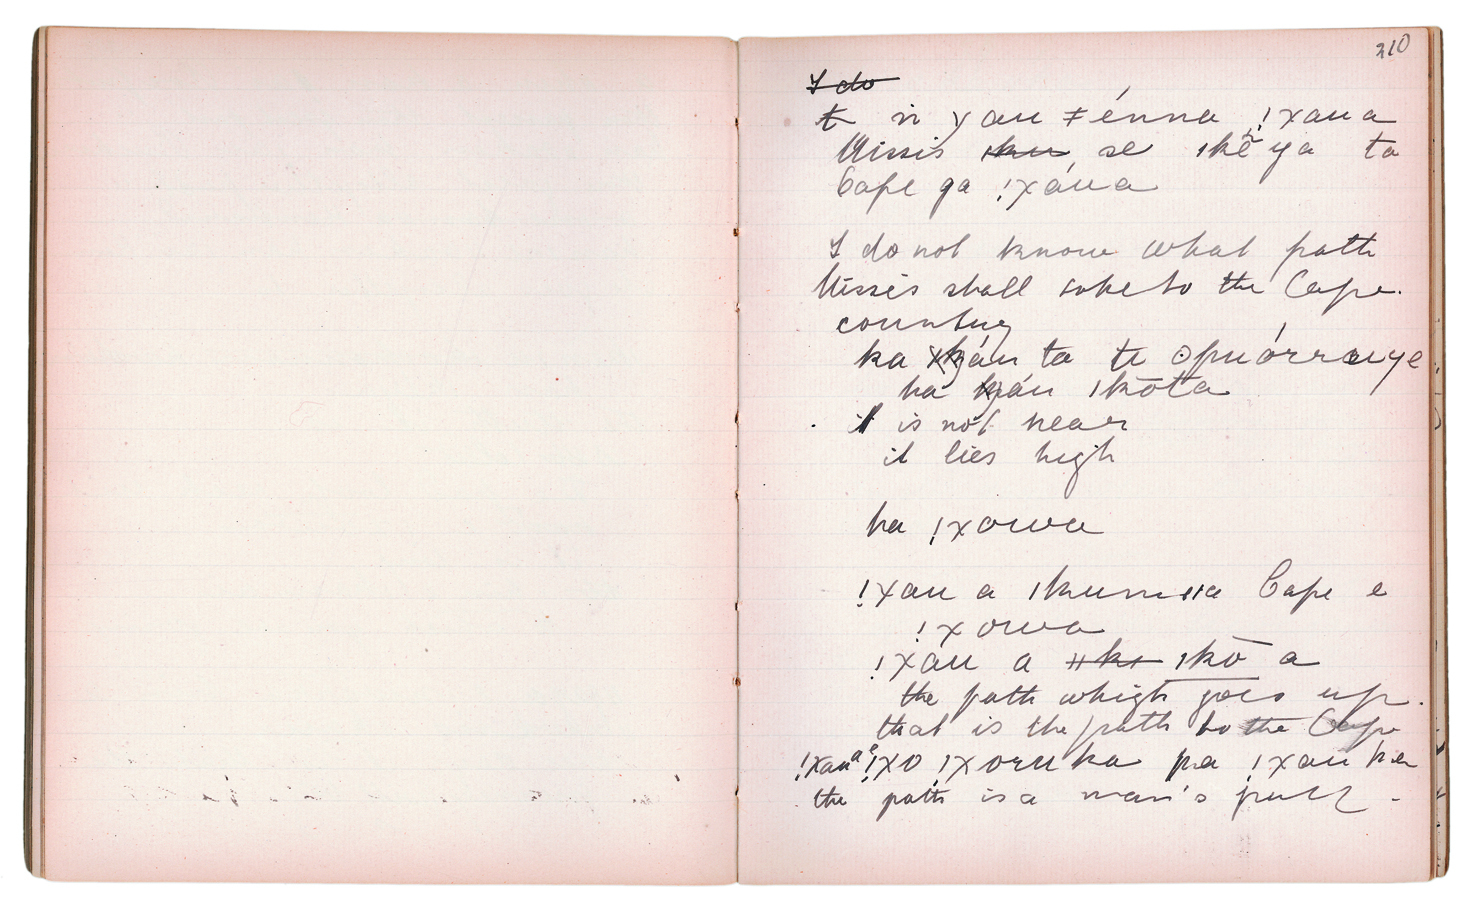 210
I do
t n yau ǂénna !χaua
Missis se ıkẽ ya ta
Cape ga !χáua
I do not know what path
Missis shall take to the Cape.
country
ka χkáu ta te ʘpuórruuye
ha káu ıkōta
it is not near
it lies high
ha !χowa
!χau a ıkumııa Cape e
!χowa
!χau a ııkı ıkō a
the path whigh goes up.
that is the path to the Cape
!χau a e !χo !χoruka pa !χau ka
the path is a man's path -